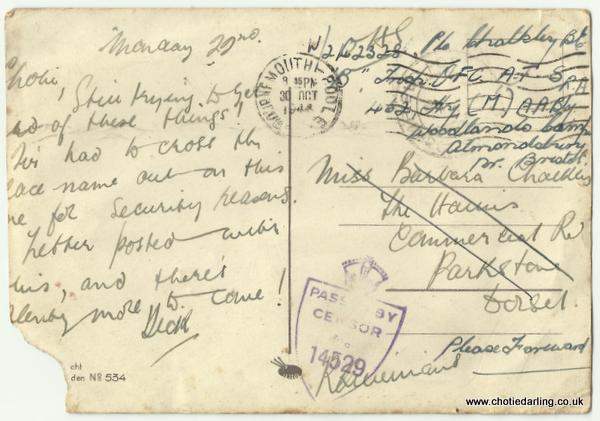 Monday 22nd.
Chotie,
Still trying to get
rid of these things!
had to cross the
place name out on this
one for security reasons.
Letter posted with
this, and there's
plenty more to come!
Dick
cht
den No 534
BOURNEMOUTH POOLE
8 15 PM
30 OCT
W/212328 Pte Chalkley B E
"B" Troop O.F.C. A.T.S.
R A
452 Hy (M) A A By
Woodlands Camp
Almondsbury
Nr. Bristol
Miss Barbara Chalkley
The Haven
Commercial Rd
Parkstone
Dorset
Please Forward
PASSED BY
CENSOR
No
14529
www.chotiedarling.co.uk